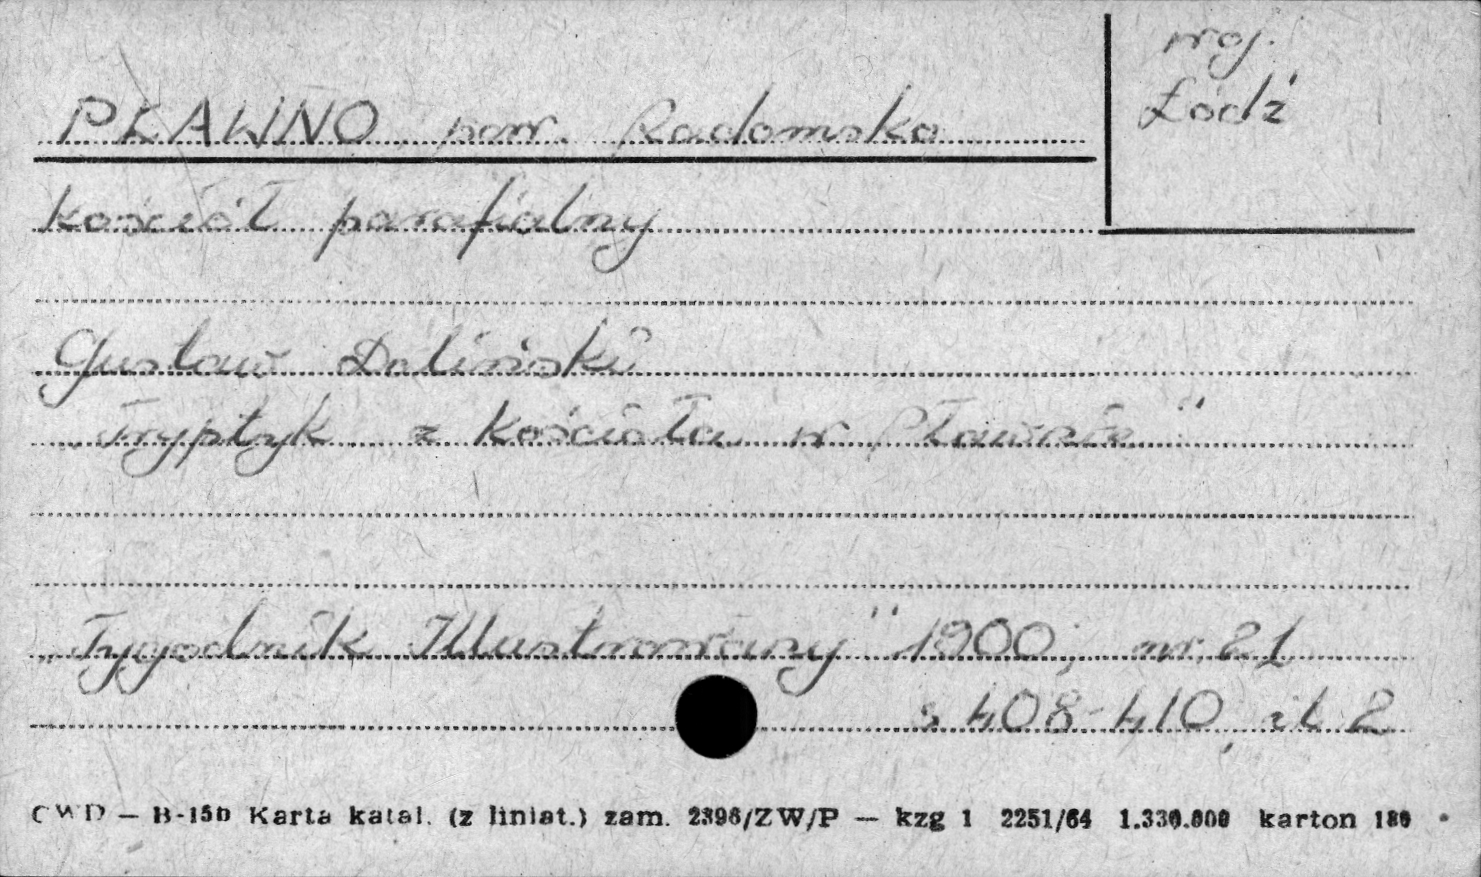 woj.
Łódź
PŁAWNO pow. Radomsko
kościół parafialny
Gustaw Doliński
„Tryptyk z kościoła w Pławnie"
„Tygodnik Illustrowany" 1900, nr. 21
s 408-410, il. 2
CWD — B-150 Karta katal. (z liniat.) zam. 2396/ZW/P — kzg 1 2251/64 1.330.000 karton 180